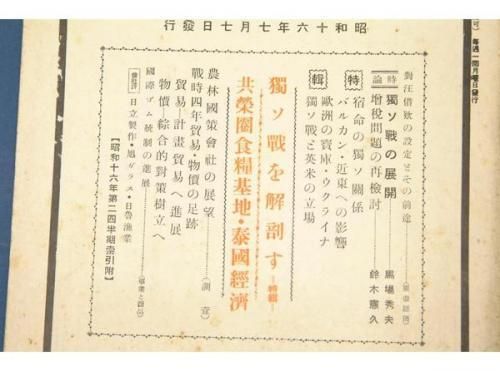 昭和十六年七月七日發行
毎週一回月曜日發行
對汪借款の設定とその前途
時論
獨ソ戰の展開 馬場秀夫
增稅問題の再檢討 鈴木憲久
特輯
宿命の獨ソ關係
バルカン・近東への影響
歐洲の寶庫・ウクライナ
獨ソ戰と英米の立場
獨ソ戰を解剖す―特輯―
共榮圈食糧基地・泰國經濟
農林國策會社の展望
戰時四年貿易・物價の足跡(調査)
貿易―計畫貿易へ進展
物價―綜合的對策樹立へ
國際ゴム統制の進展
會社評 日立製作・旭ガラス・日魯漁業
【昭和十六年第二四半期索引附】